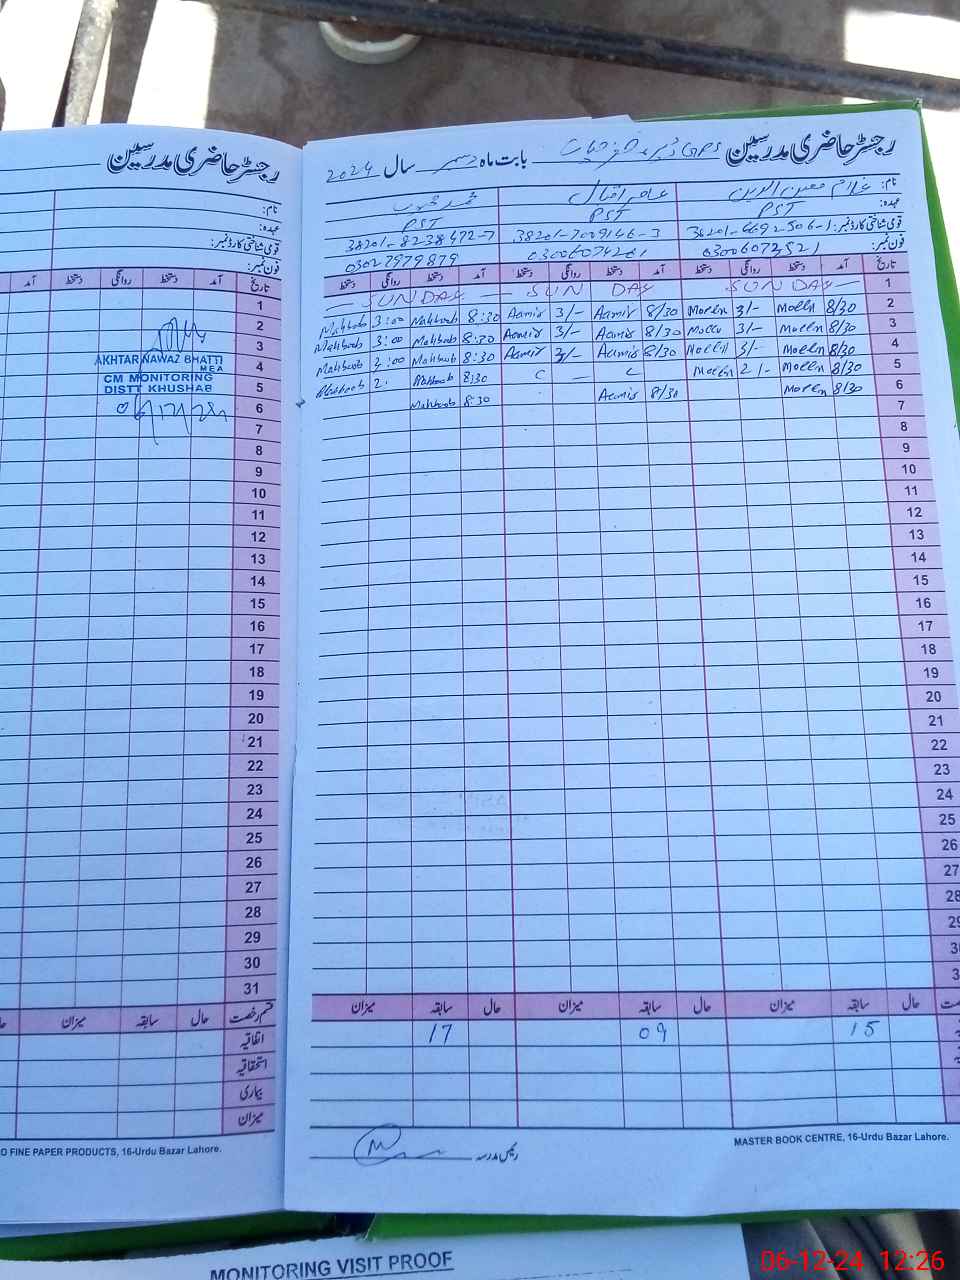 رجسٹر حاضری مدرسین
نام:
عہدہ:
قومی شناختی کارڈ نمبر:
فون نمبر:
تاریخ آمد دستخط روانگی دستخط آمد
1
2
3
4
5
6
7
8
9
10
11
12
13
14
15
16
17
18
19
20
21
22
23
24
25
26
27
28
29
30
31
AKHTAR NAWAZ BHATTI
MEA
CM MONITORING
DISTT KHUSHAB
قسم رخصت حال سابقہ میزان
اتفاقیہ
استحقاقیہ
بیماری
میزان
O FINE PAPER PRODUCTS, 16-Urdu Bazar Lahore.
رجسٹر حاضری مدرسین GPS بابت ماہ دسمبر سال 2024
نام: غلام معین الدین عامر اقبال محمد محبوب
عہدہ: PST PST PST
قومی شناختی کارڈ نمبر: 38201-7009146-3 38201-8238472-7
فون نمبر: 03006074201 03027979879
تاریخ آمد دستخط روانگی دستخط آمد دستخط روانگی دستخط آمد دستخط روانگی دستخط
1 SUNDAY SUN DAY SUNDAY
2 8/30 Moeen 3/- Moeen 8/30 Aamir 3/- Aamir 8:30 Mahboob 3:00 Mahboob
3 8/30 Moeen 3/- Moeen 8/30 Aamir 3/- Aamir 8:30 Mahboob 3:00 Mahboob
4 8/30 Moeen 3/- Moeen 8/30 Aamir 3/- Aamir 8:30 Mahboob 2:00 Mahboob
5 8/30 Moeen 2/- Moeen L C 8:30 Mahboob 2. Mahboob
6 8/30 Moeen 8/30 Aamir 8:30 Mahboob
7
8
9
10
11
12
13
14
15
16
17
18
19
20
21
22
23
24
25
26
27
28
حال سابقہ میزان حال سابقہ میزان حال سابقہ میزان
15 09 17
رئیس مدرسہ
MASTER BOOK CENTRE, 16-Urdu Bazar Lahore.
MONITORING VISIT PROOF
06-12-24 12:26